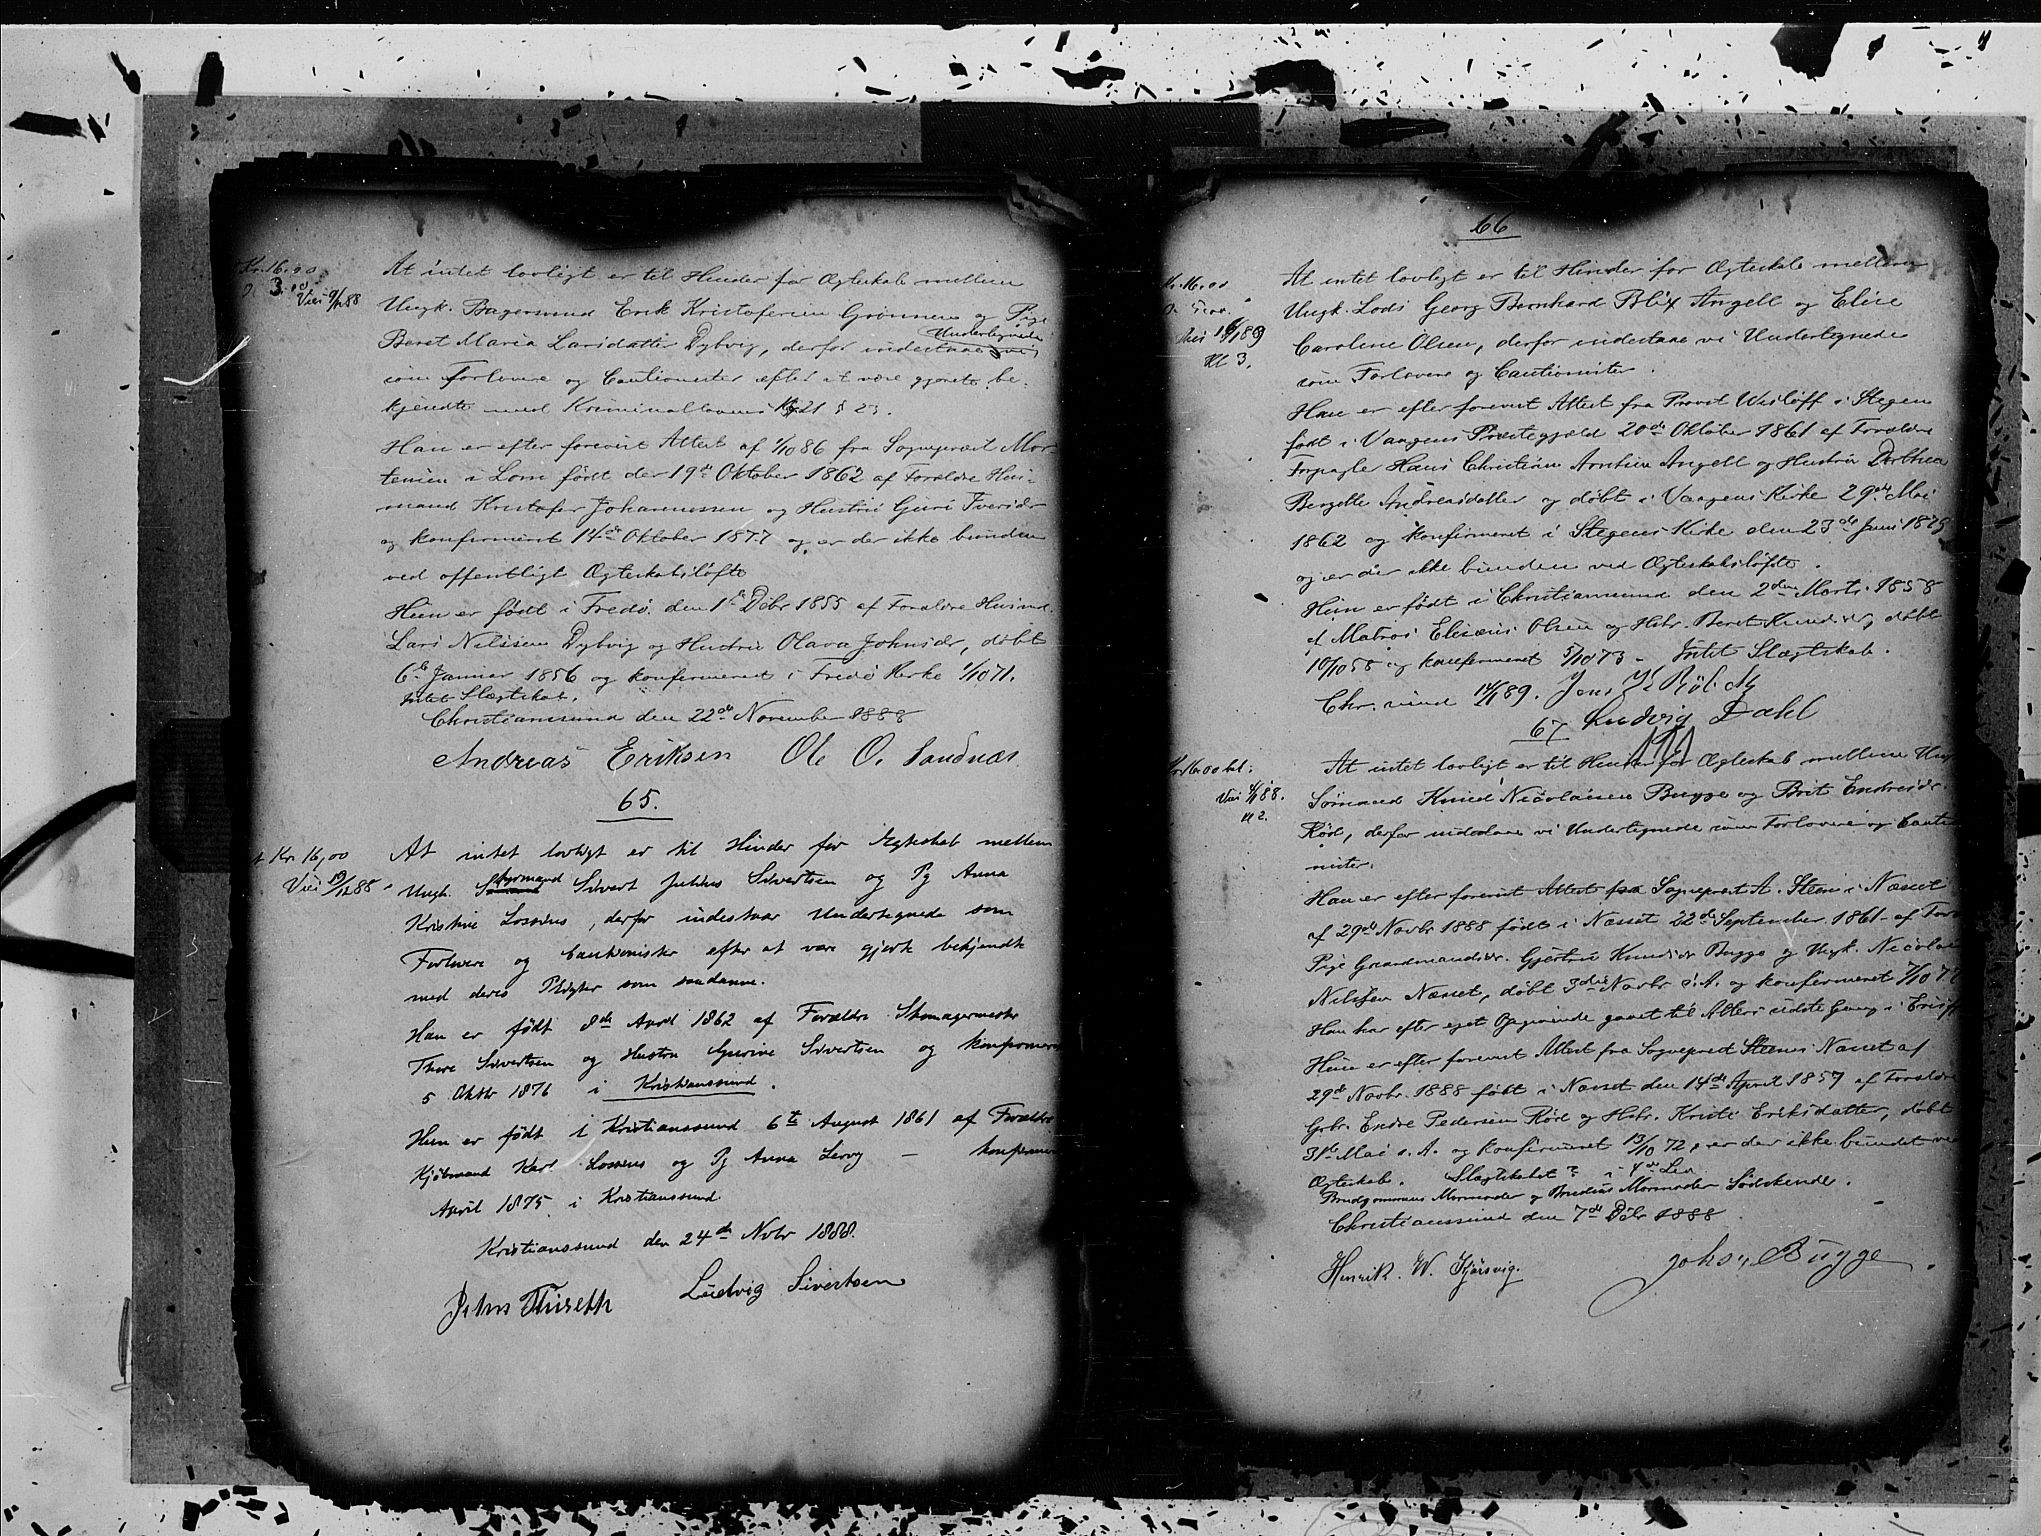 Kr. 16.00
3.00
Viet 9/12 88
At intet lovligt er til Hinder for Ægteskab mellem
Ungk. Bagersvend Erik Kristofersen Grønnen og Pige
Beret Maria Larsdatter Dybvig, derfor indestaae vi Undertegnede
som Forlovere og Cautionister efter at være gjorte be-
kjendte med Kriminallovens Kp 21 § 23.
Han er efter forevist Attest af 1/10 86 fra Sogneprest Mor-
tensen i Lom født den 19de Oktober 1862 af Forældre Hus-
mand Kristofer Johannessen og Hustru Guri Iversdr
og konfirmeret 14de Oktober 1877 og er der ikke bunden
ved offentligt Ægteskabsløfte
Hun er født i Fredø den 1ste Decbr 1855 af Forældre Husmd.
Lars Nilssen Dybvig og Hustru Olava Johnsdr, døbt
6te Januar 1856 og konfirmeret i Fredø Kirke 1/10 71.
Intet Slægtskab.
Christianssund den 22de November 1888
Andreas Eriksen Ole O. Sandnæs
65.
Kr. 16,00
Viet 19/12 88
At intet lovligt er til Hinder for Egteskab mellem
Ungk. Styrmand Sivert Julius Sivertsen og Pg Anna
Kristine Lossius, derfor indestaar Undertegnede som
Forlovere og Cautionister efter at være gjorte bekjendte
med deres Pligter som saadanne.
Han er født 8de April 1862 af Forældre Skomagermester
Thore Sivertsen og Hustru Gurine Sivertsen og konfirmeret
5 Oktbr 1876 i Kristianssund.
Hun er født i Kristianssund 6te August 1861 af Forældre
Kjøbmand Karl Lossius og Pg Anna Lervg — konfirmeret
April 1875 i Kristianssund
Kristianssund den 24de Novbr 1888.
Johs Thiseth Ludvig Sivertsen
66
Kr. 16.00
Kl 3.
At intet lovligt er til Hinder for Ægteskab mellem
Ungk. Lods Georg Bernhard Blix Angell og Elise
Caroline Olsen, derfor indestaae vi Undertegnede
som Forlovere og Cautionister.
Han er efter forevist Attest fra Provst Wisløff i Stegen
født i Vaagens Præstegjæld 20de Oktober 1861 af Forældre
Forpagter Hans Christian Arntsen Angell og Hustru Dorthea
Bergitte Andreasdatter og døbt i Vaagens Kirke 29de Mai
1862 og konfirmeret i Stegens Kirke den 23de Juni 1878
og er der ikke bunden ved Ægteskabsløfte.
Hun er født i Christianssund den 2den Marts 1858
af Matros Eliseus Olsen og Hstr. Beret Knudsdr, døbt
10/10 58 og konfirmeret 5/10 73 - Intet Slægtskab.
Chr.sund 14/1 89. Jens
Ludvig Dahl
67
Kr 16.00 bet.
Viet 88.
Kl 2.
At intet lovligt er til Hinder for Ægteskab mellem Ungk
Sømand Knud Nicolaisen Bugge og Brit Endresdr.
Rød, derfor indestaae vi Undertegnede som Forlovere og Cautio-
nister.
Han er efter forevist Attest fra Sogneprest A. Steen i Næsset
af 29de Novbr 1888 født i Næsset 22de September 1861 af Foræ
Pige Gaardmandsdr. Gjertru Knudsdr Bugge og Ungk. Nicolai
Nilssen Næsset, døbt 3die Novbr s. A. og konfirmeret 7/10 77
Han har efter eget Opgivende gaaet til Alters sidste Gang i Eriks
Hun er efter forevist Attest fra Sogneprest Steen i Næsset af
29de Novbr. 1888 født i Næsset den 14de April 1857 af Forældre
Gbr. Endre Pedersen Rød og Hstr. Kristi Eriksdatter, døbt
31te Mai s. A. og konfirmeret 13/10 72, er der ikke bundet ved
Ægteskab. Slægtskabet? i 4de Led
Brudgommens Mormoder og Brudens Mormoder Sødskende.
Christianssund den 7de Dcbr 1888
Henrik. W. Gjørsvig. Johs. Bugge